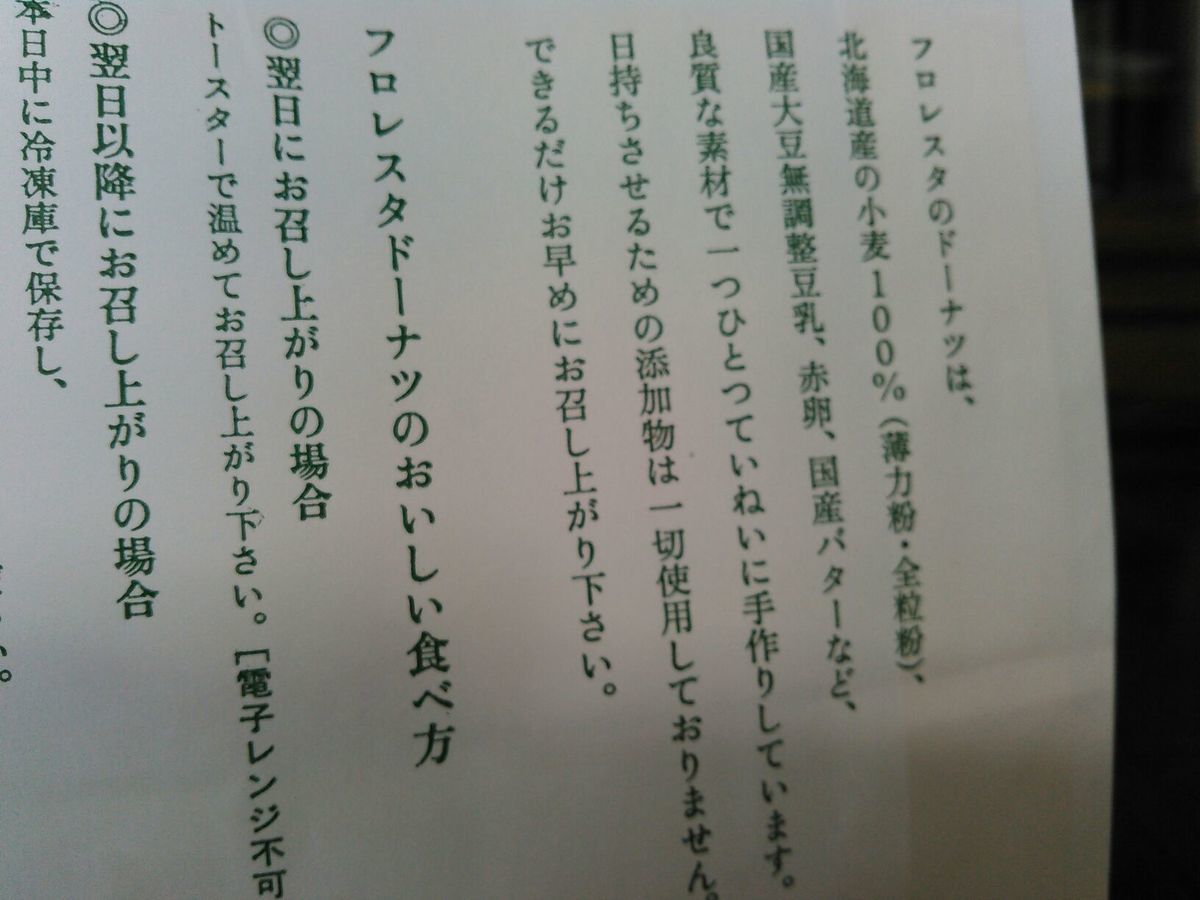 フロレスタのドーナツは、
北海道産の小麦100%（薄力粉・全粒粉）、
国産大豆無調整豆乳、赤卵、国産バターなど、
良質な素材で一つひとつていねいに手作りしています。
日持ちさせるための添加物は一切使用しておりません。
できるだけお早めにお召し上がり下さい。
フロレスタドーナツのおいしい食べ方
◎翌日にお召し上がりの場合
トースターで温めてお召し上がり下さい。［電子レンジ不可
◎翌日以降にお召し上がりの場合
本日中に冷凍庫で保存し、